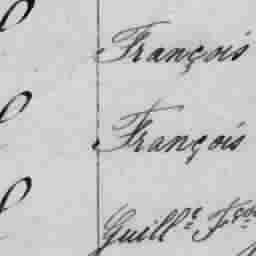 François
François
Guill.e F.çois